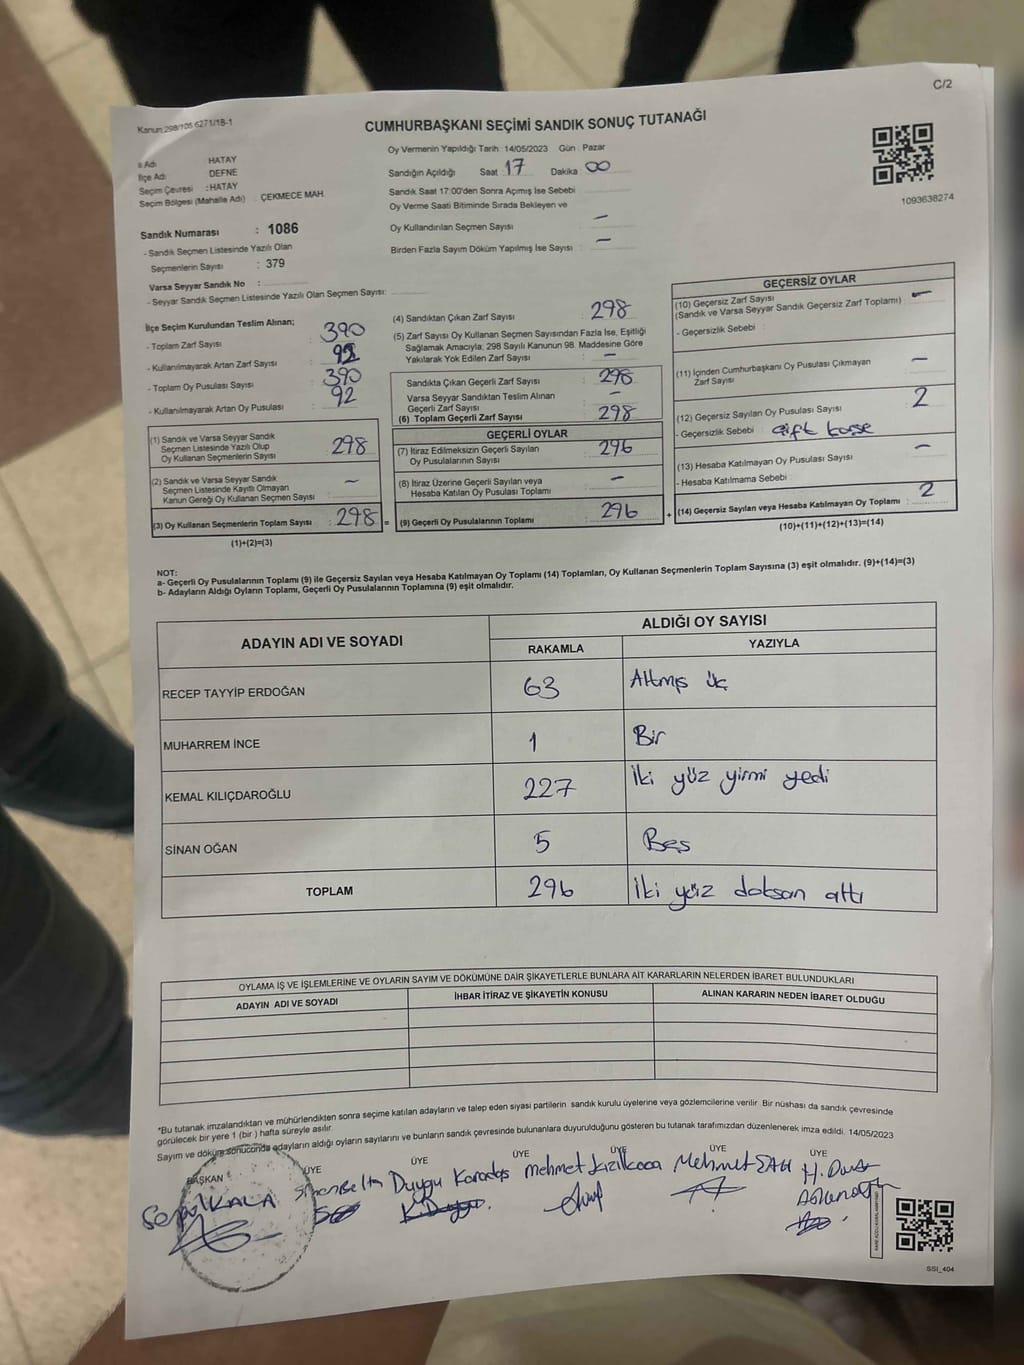 C/2
Kanun:298/105 6271/18-1
CUMHURBAŞKANI SEÇİMİ SANDIK SONUÇ TUTANAĞI
İl Adı HATAY
İlçe Adı DEFNE
Seçim Çevresi :HATAY
Seçim Bölgesi (Mahalle Adı) : ÇEKMECE MAH.
Sandık Numarası : 1086
- Sandık Seçmen Listesinde Yazılı Olan
Seçmenlerin Sayısı : 379
Varsa Seyyar Sandık No :
- Seyyar Sandık Seçmen Listesinde Yazılı Olan Seçmen Sayısı:
Oy Vermenin Yapıldığı Tarih : 14/05/2023 Gün : Pazar
Sandığın Açıldığı Saat 17 Dakika 00
Sandık Saat 17:00'den Sonra Açımış İse Sebebi
Oy Verme Saati Bitiminde Sırada Bekleyen ve
Oy Kullandırılan Seçmen Sayısı : —
Birden Fazla Sayım Döküm Yapılmış İse Sayısı : —
1093638274
İlçe Seçim Kurulundan Teslim Alınan;
- Toplam Zarf Sayısı : 390
- Kullanılmayarak Artan Zarf Sayısı : 92
- Toplam Oy Pusulası Sayısı : 390
- Kullanılmayarak Artan Oy Pusulası : 92
(1) Sandık ve Varsa Seyyar Sandık
Seçmen Listesinde Yazılı Olup
Oy Kullanan Seçmenlerin Sayısı : 298
(2) Sandık ve Varsa Seyyar Sandık
Seçmen Listesinde Kayıtlı Olmayan
Kanun Gereği Oy Kullanan Seçmen Sayısı : —
(3) Oy Kullanan Seçmenlerin Toplam Sayısı : 298 =
(1)+(2)=(3)
(4) Sandıktan Çıkan Zarf Sayısı : 298
(5) Zarf Sayısı Oy Kullanan Seçmen Sayısından Fazla İse, Eşitliği
Sağlamak Amacıyla; 298 Sayılı Kanunun 98. Maddesine Göre
Yakılarak Yok Edilen Zarf Sayısı : —
Sandıkta Çıkan Geçerli Zarf Sayısı : 298
Varsa Seyyar Sandıktan Teslim Alınan
Geçerli Zarf Sayısı : —
(6) Toplam Geçerli Zarf Sayısı : 298
GEÇERLİ OYLAR
(7) İtiraz Edilmeksizin Geçerli Sayılan
Oy Pusulalarının Sayısı : 296
(8) İtiraz Üzerine Geçerli Sayılan veya
Hesaba Katılan Oy Pusulası Toplamı : —
(9) Geçerli Oy Pusulalarının Toplamı : 296 +
GEÇERSİZ OYLAR
(10) Geçersiz Zarf Sayısı
(Sandık ve Varsa Seyyar Sandık Geçersiz Zarf Toplamı) : —
- Geçersizlik Sebebi :
(11) İçinden Cumhurbaşkanı Oy Pusulası Çıkmayan
Zarf Sayısı : —
(12) Geçersiz Sayılan Oy Pusulası Sayısı : 2
- Geçersizlik Sebebi : çift kaşe
(13) Hesaba Katılmayan Oy Pusulası Sayısı : —
- Hesaba Katılmama Sebebi :
(14) Geçersiz Sayılan veya Hesaba Katılmayan Oy Toplamı : 2
(10)+(11)+(12)+(13)=(14)
NOT:
a- Geçerli Oy Pusulalarının Toplamı (9) ile Geçersiz Sayılan veya Hesaba Katılmayan Oy Toplamı (14) Toplamları, Oy Kullanan Seçmenlerin Toplam Sayısına (3) eşit olmalıdır. (9)+(14)=(3)
b- Adayların Aldığı Oyların Toplamı, Geçerli Oy Pusulalarının Toplamına (9) eşit olmalıdır.
ADAYIN ADI VE SOYADI
ALDIĞI OY SAYISI
RAKAMLA YAZIYLA
RECEP TAYYİP ERDOĞAN 63 Altmış üç
MUHARREM İNCE 1 Bir
KEMAL KILIÇDAROĞLU 227 İki yüz yirmi yedi
SİNAN OĞAN 5 Beş
TOPLAM 296 İki yüz doksan altı
OYLAMA İŞ VE İŞLEMLERİNE VE OYLARIN SAYIM VE DÖKÜMÜNE DAİR ŞİKAYETLERLE BUNLARA AİT KARARLARIN NELERDEN İBARET BULUNDUKLARI
ADAYIN ADI VE SOYADI İHBAR İTİRAZ VE ŞİKAYETİN KONUSU ALINAN KARARIN NEDEN İBARET OLDUĞU
*Bu tutanak imzalandıktan ve mühürlendikten sonra seçime katılan adayların ve talep eden siyasi partilerin sandık kurulu üyelerine veya gözlemcilerine verilir. Bir nüshası da sandık çevresinde
görülecek bir yere 1 (bir) hafta süreyle asılır.
Sayım ve döküm sonucunda adayların aldığı oyların sayılarını ve bunların sandık çevresinde bulunanlara duyurulduğunu gösteren bu tutanak tarafımızdan düzenlenerek imza edildi. 14/05/2023
BAŞKAN ÜYE ÜYE ÜYE ÜYE ÜYE
KALA Duygu Karadaş Mehmet Kızılkaca Mehmet
SSI_404